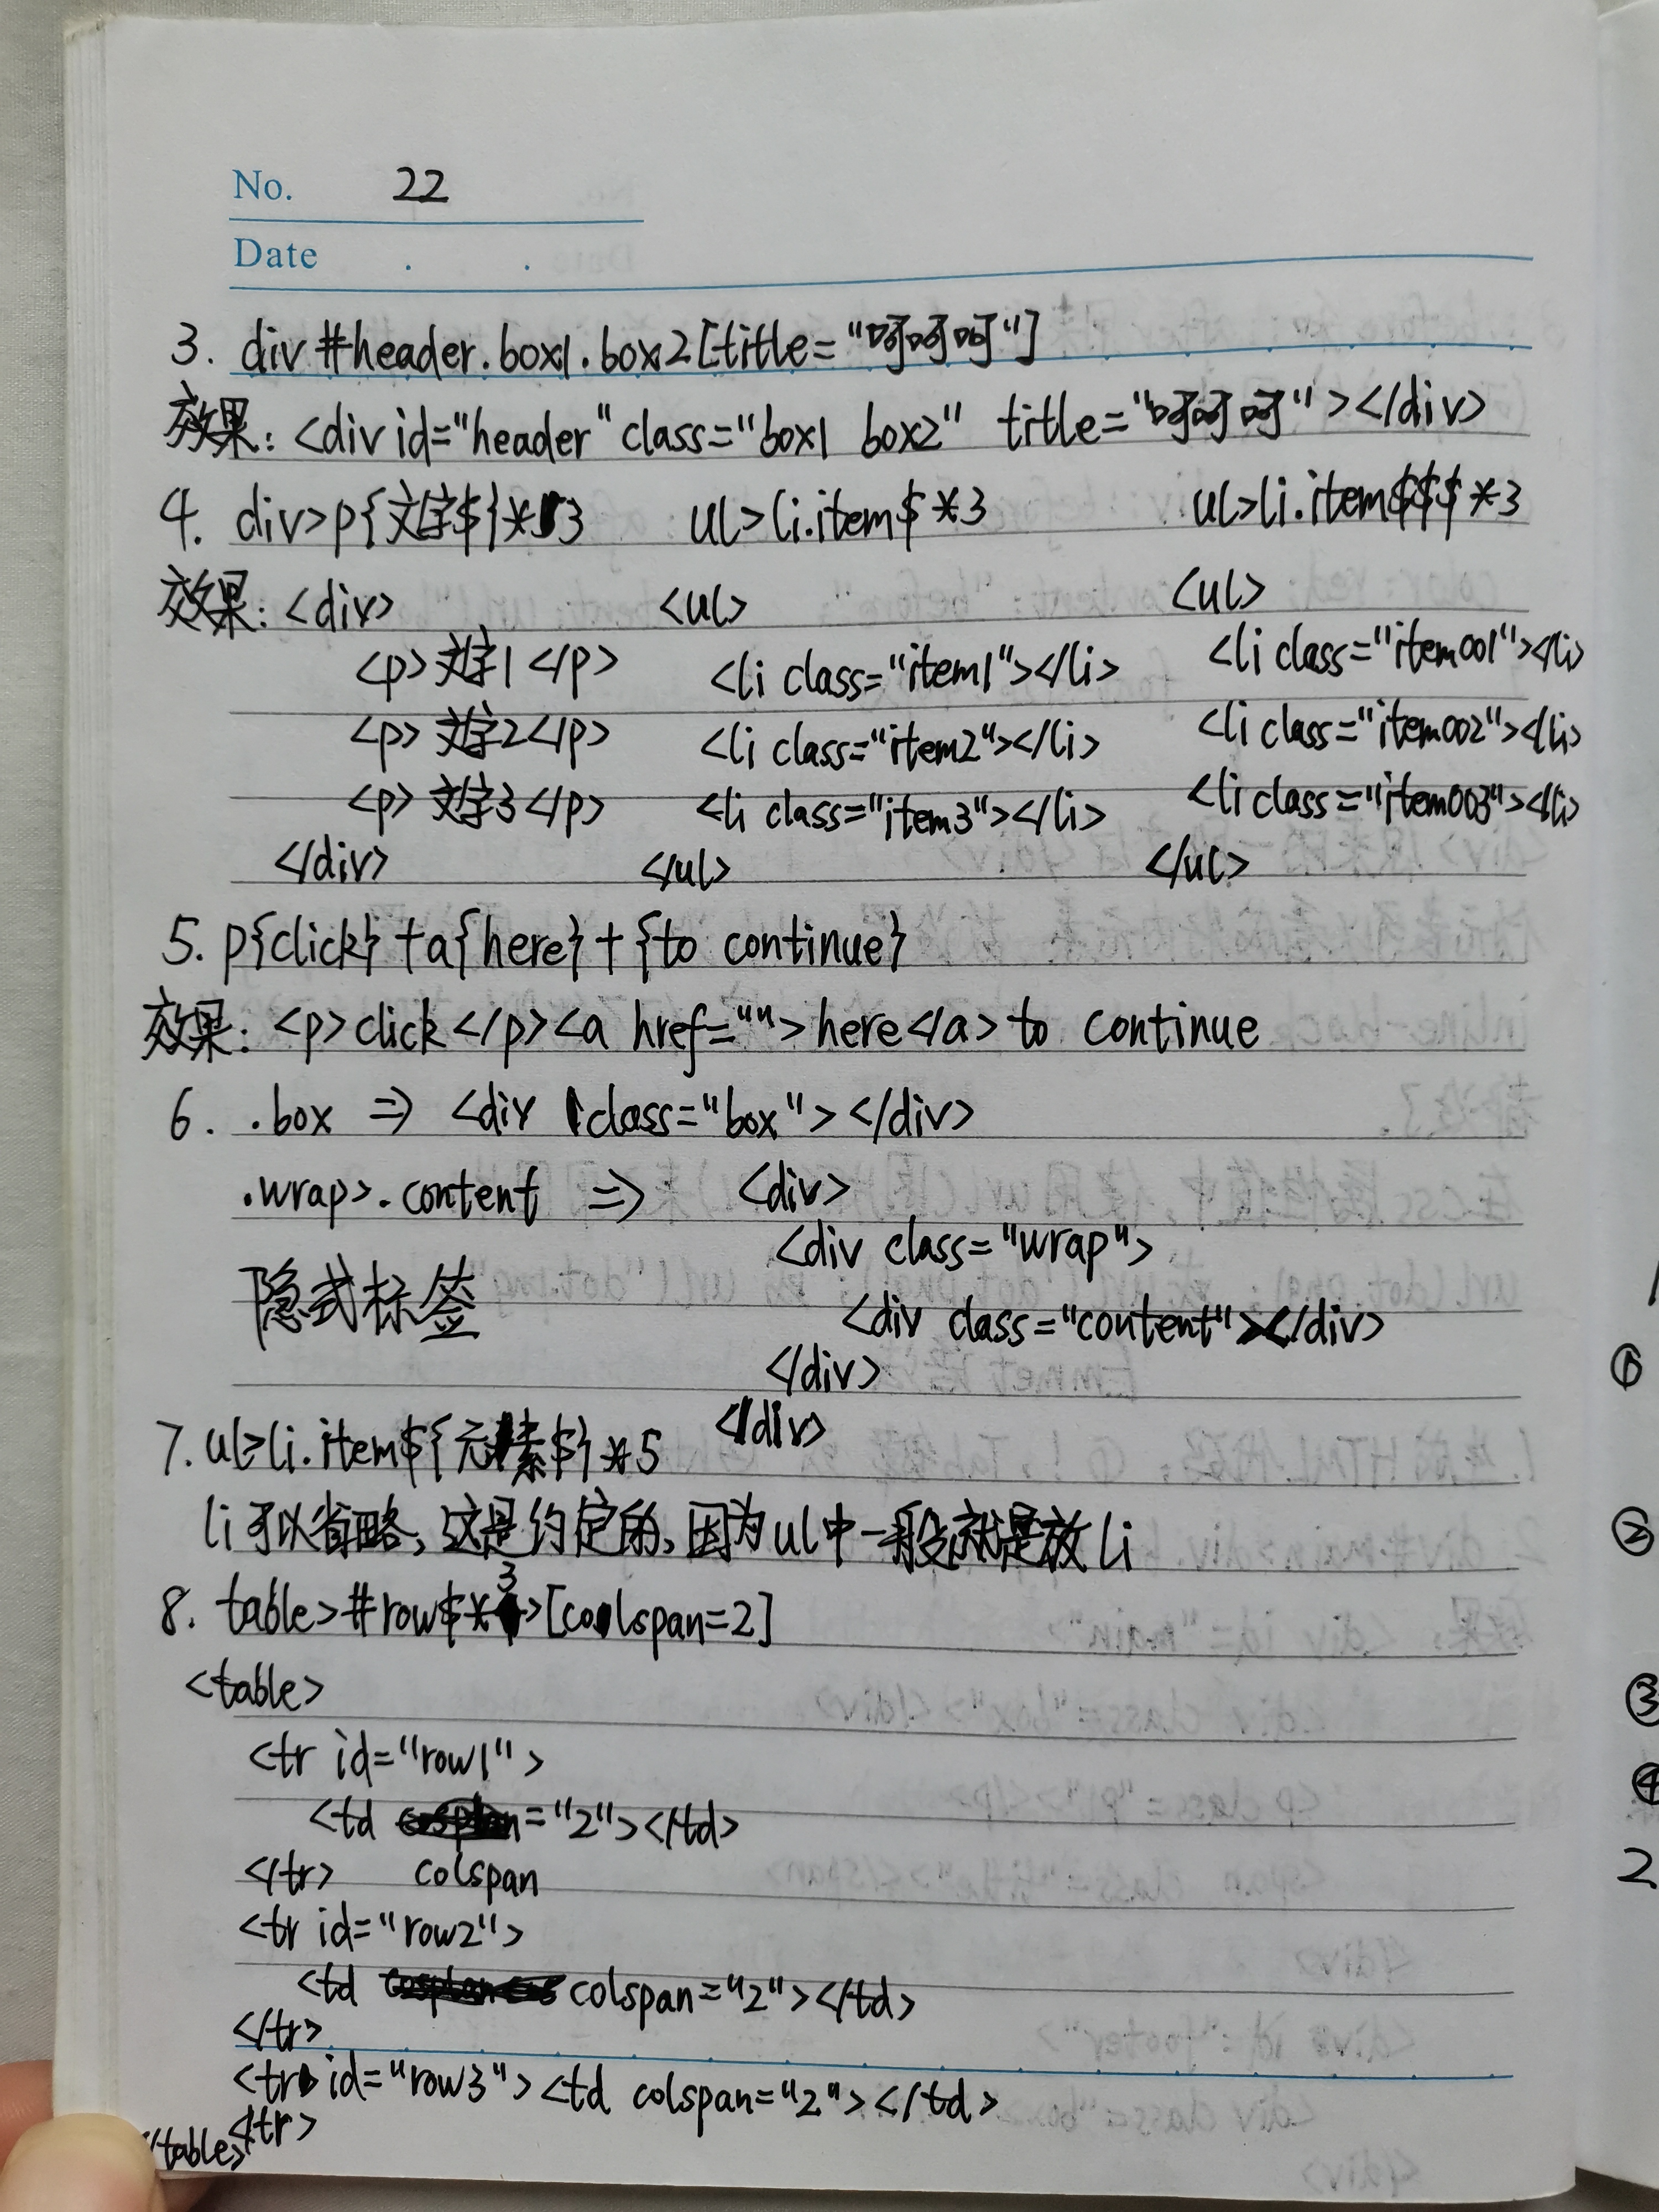 No. 22
Date . .
3. div#header.box1.box2[title="呵呵呵"]
效果: <div id="header" class="box1 box2" title="呵呵呵"></div>
4. div>p{文字$}*3 ul>li.item$*3 ul>li.item$$$*3
效果: <div> <ul> <ul>
<p>文字1</p> <li class="item1"></li> <li class="item001"></li>
<p>文字2</p> <li class="item2"></li> <li class="item002"></li>
<p>文字3</p> <li class="item3"></li> <li class="item003"></li>
</div> </ul> </ul>
5. p{click}+a{here}+{to continue}
效果: <p>click</p><a href="">here</a> to continue
6. .box => <div class="box"></div>
.wrap>.content => <div>
<div class="wrap">
隐式标签 <div class="content"></div>
</div>
</div>
7. ul>li.item${元素$}*5
li可以省略,这是约定的,因为ul中一般就是放li
8. table>#row$*3>[colspan=2]
<table>
<tr id="row1">
<td ="2"></td>
</tr> colspan
<tr id="row2">
<td colspan="2"></td>
</tr>
<tr id="row3"><td colspan="2"></td>
</tr>
</table>
①
②
③
④
2